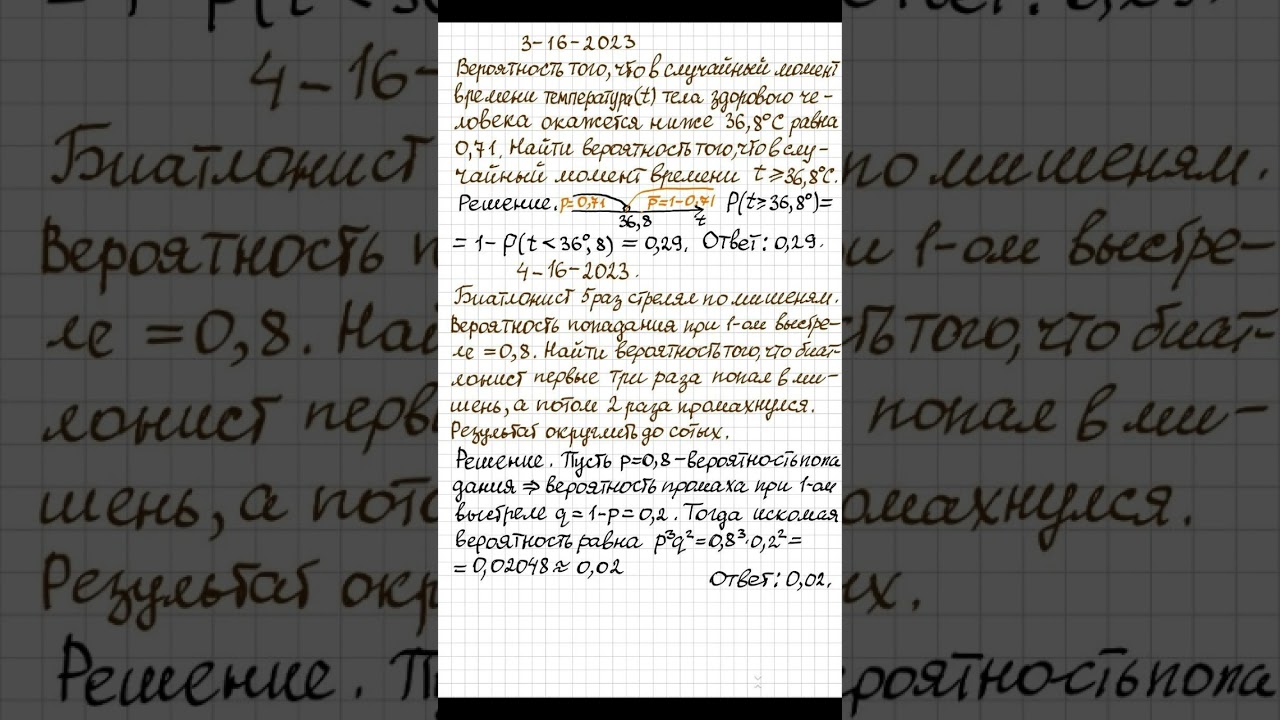 3-16-2023
Вероятность того, что в случайный момент
времени температура(t) тела здорового че-
ловека окажется ниже 36,8°С равна
0,71. Найти вероятность того, что в слу-
чайный момент времени t ⩾ 36,8°С.
Решение. p=0,71 p̅=1-0,71 P(t⩾36,8°)=
36,8 t
= 1- P(t < 36°,8) = 0,29. Ответ: 0,29.
4-16-2023.
Биатлонист 5 раз стрелял по мишеням.
Вероятность попадания при 1-ом выстре-
ле = 0,8. Найти вероятность того, что биат-
лонист первые три раза попал в ми-
шень, а потом 2 раза промахнулся.
Результат округлить до сотых.
Решение. Пусть p=0,8 - вероятность попа
дания ⇒ вероятность промаха при 1-ом
выстреле q = 1-p = 0,2. Тогда искомая
вероятность равна p³q² = 0,8³·0,2² =
= 0,02048 ≈ 0,02
Ответ: 0,02.